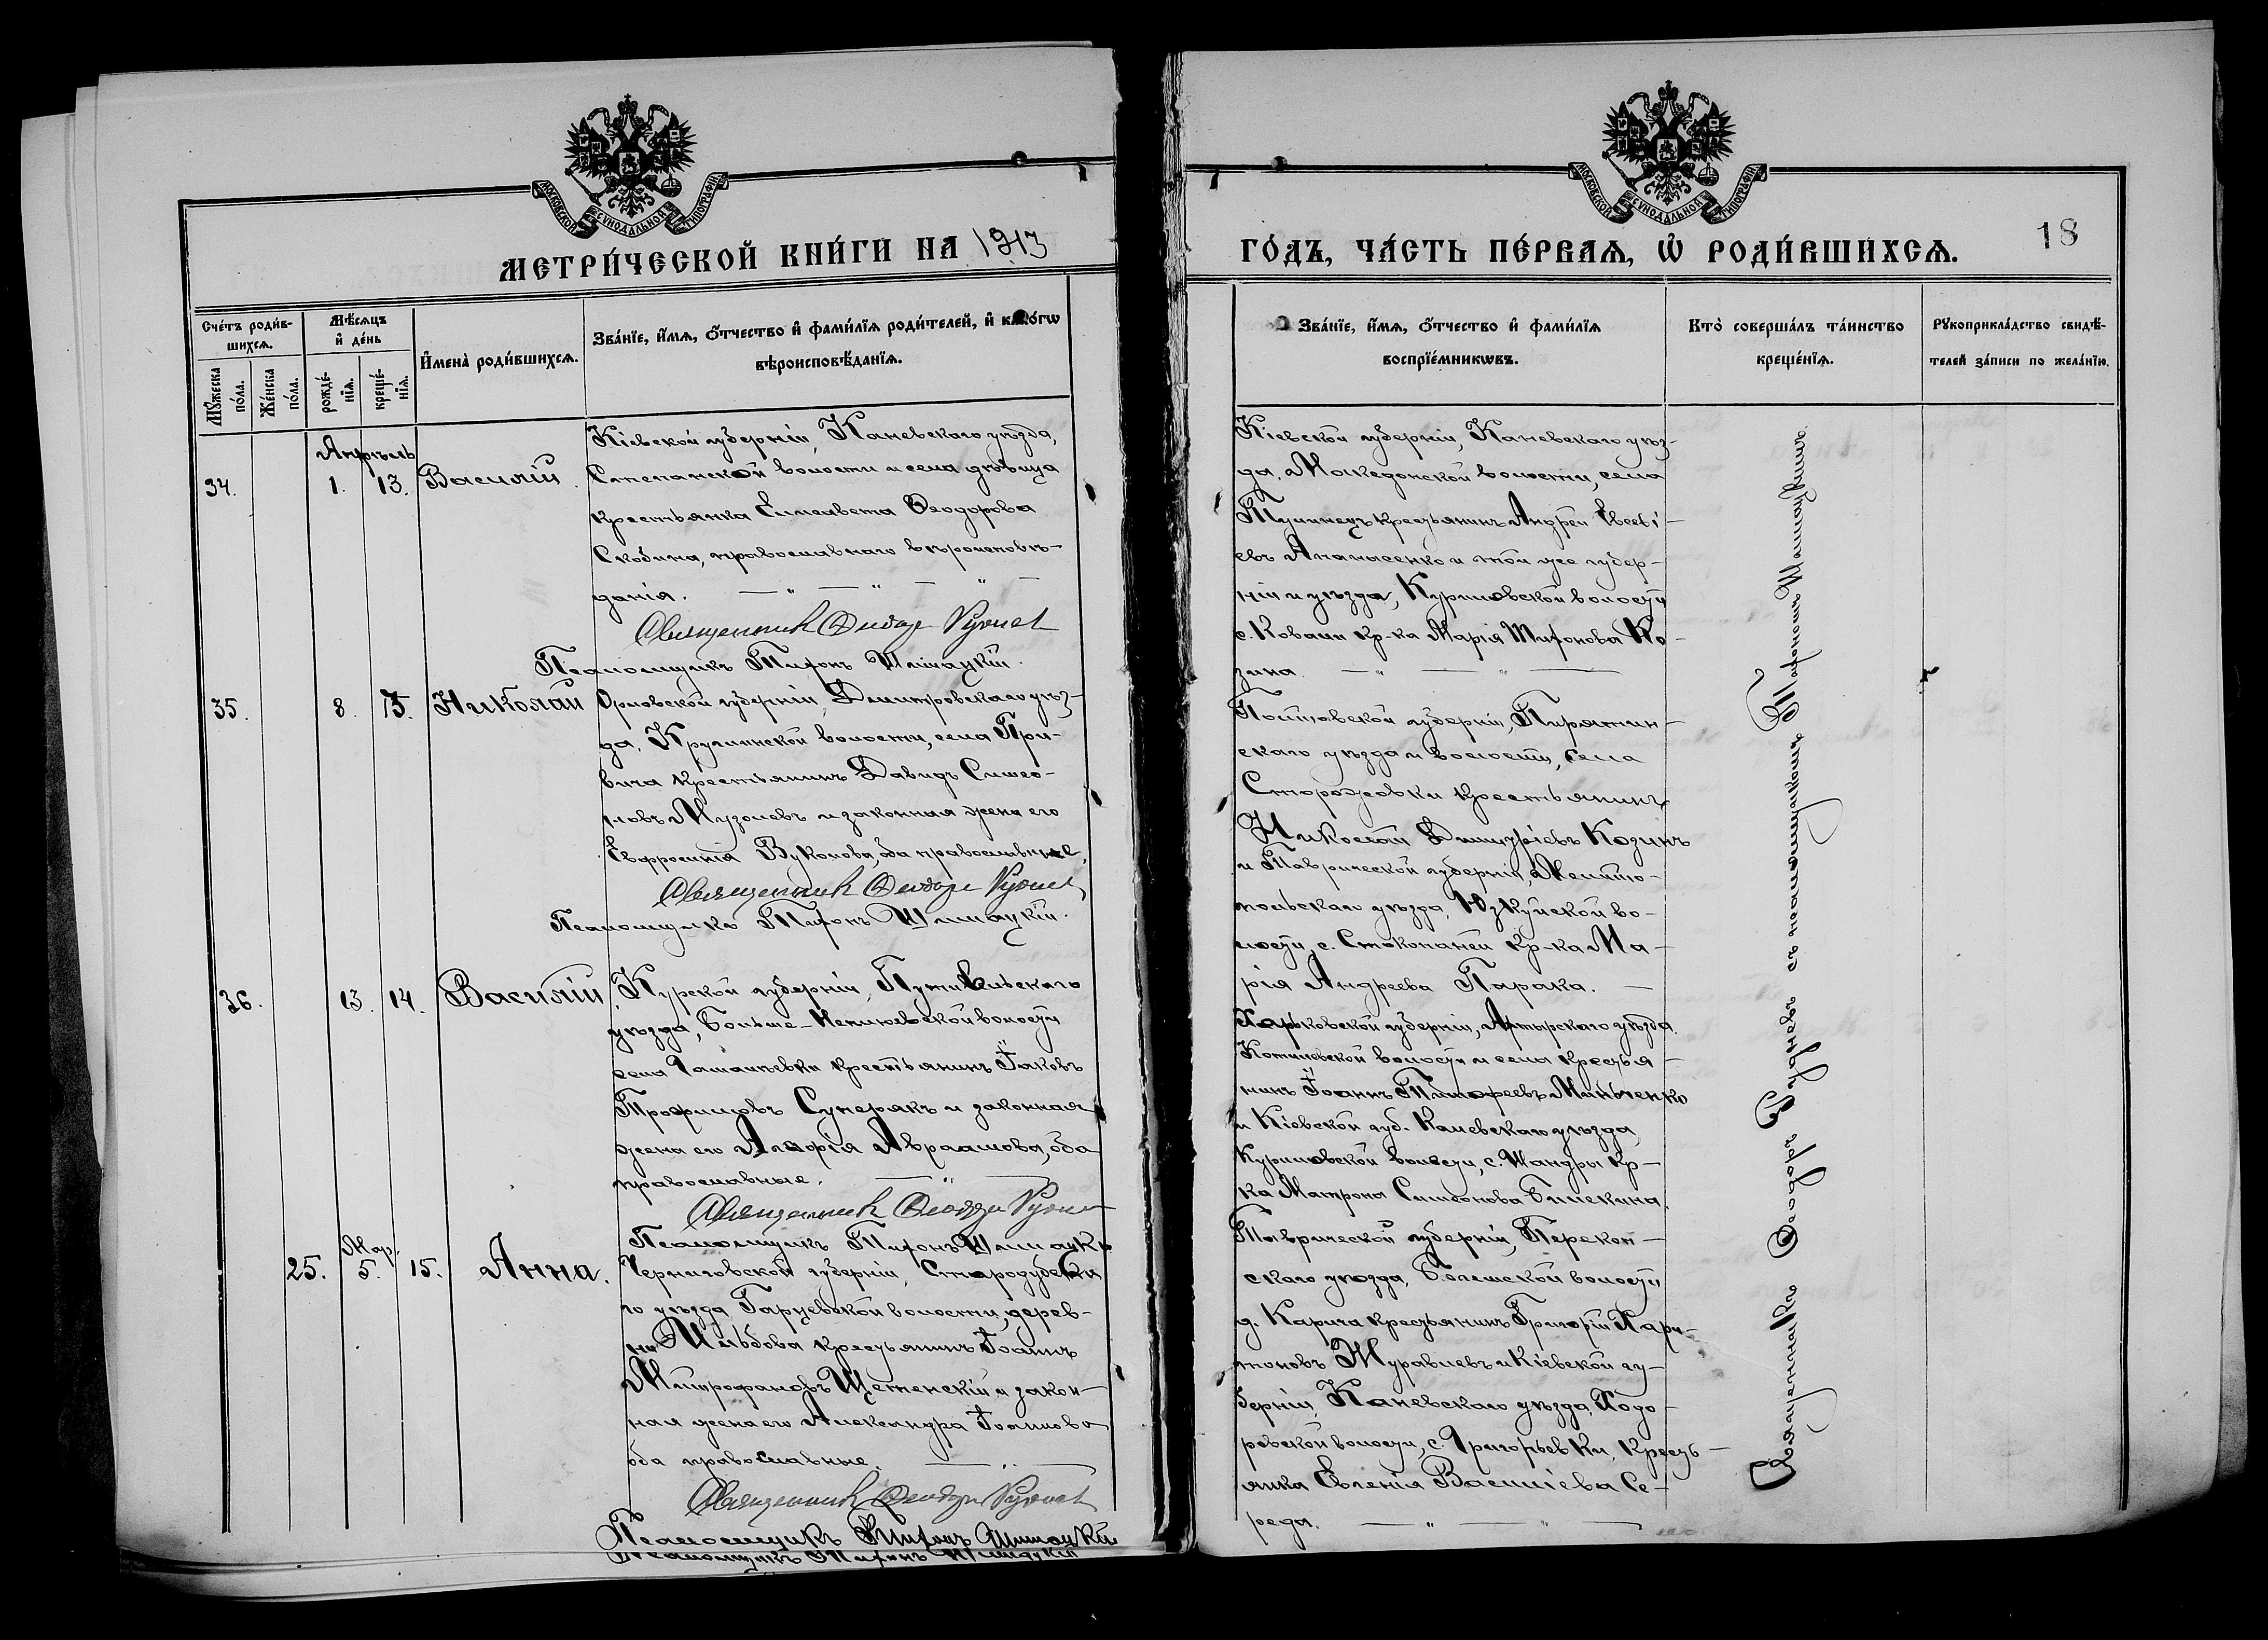 МОСКОВСКОЙ СУНОДАЛЬНОЙ ТИПОГРАФІИ
МЕТРИ́ЧЕСКОЙ КНИ́ГИ НА 1913
Сче́тъ роди́в-
шихсѧ.
Мѣ́сяцъ
и҆ де́нь
Мꙋ́жеска
по́ла.
Же́нска
по́ла.
рожде́-
нїѧ.
креще́-
нїѧ.
И҆мена̀ роди́вшихсѧ.
Зва́нїе, и҆́мѧ, ѻ҆́тчество и҆ фами́лїѧ роди́телей, и҆ как҄о́гѡ
вѣроисповѣ́данїѧ.
Апрѣль
34. 1. 13. Василій.
Кіевской губерніи, Каневскаго уѣзда,
Степанской волости и села дѣвица
крестьянка Елисавета Ѳеодорова
Скобина, православнаго вѣроисповѣ-
данія.
Священник Феодор
Псаломщикъ Тифонъ Шпицкій.
35. 8. 15. Николай
Орловской губерніи, Дмитровскаго уѣз-
да, Круглинской волости, села При-
вича крестьянинъ Давидъ Симео-
новъ Музолевъ и законная жена его
Евфросинія Вуколова, оба православные.
Священник Феодор
Псаломщикъ Тифонъ
36. 13. 14. Василій
Курской губерніи, Путивльскаго
уѣзда, Больше-Неплюевской волости
села крестьянинъ Іаковъ
Трофимовъ Сунерякъ и законная
жена его Авраамова, оба
православные.
Священник Феодор
Псаломщикъ Тифонъ
Мар.
25. 5. 15. Анна.
Черниговской губерніи, Стародубска
го уѣзда Гарцевской волости, дерев-
ни Ильбова крестьянинъ Іоаннъ
Митрофановъ Щеменскій и закон-
ная жена его Александра Іоаннова
оба православные.
Священник Феодор
Псаломщикъ Тифонъ
Псаломщикъ Тифонъ
МОСКОВСКОЙ СУНОДАЛЬНОЙ ТИПОГРАФІИ
ГО́ДЪ, ЧА́СТЬ ПЕ́РВАѦ, Ѽ РОДИ́ВШИХСѦ.
18
Зва́нїе, и҆́мѧ, ѻ҆́тчество и҆ фами́лїѧ
воспрїе́мникѡвъ.
Кто̀ соверша́лъ та́инство
креще́нїѧ.
Рꙋкоприкла́дство свидѣ́-
телей за́писи по жела́нїю.
Кіевской губерніи, Каневскаго уѣз-
да, Македонской волости, села
Тулинецъ крестьянинъ Андрей Евсеві-
евъ Апанасенко и той же губер-
ніи и уѣзда, Куриловской волости
с. Ковали кр-ка Марія Тифонова Ко-
зина
Полтавской губерніи, Пирятин-
скаго уѣзда и волости, села
Сторожовки крестьянинъ
Николай Димитріевъ Козинъ
и Таврической губерніи, Мелито-
польскаго уѣзда, Юзкуйской во-
лости, с. Стокопаней кр-ка Ма-
рія Андреева Парака.
Харьковской губерніи, Ахтырскаго уѣзда.
Котелевской волости и села крестья-
нинъ Іоаннъ Тимофеевъ Минченко
и Кіевской губ. Каневскаго уѣзда,
Куриловской волости, с. Шандры кр-
ка Матрона Симеонова
Таврической губерніи, Перекоп-
скаго уѣзда, волости
д. Карича крестьянинъ Григорій Хари-
тоновъ Журавлевъ и Кіевской гу-
берніи, Каневскаго уѣзда, Ходо-
ровской волости, с. Григорьевки, кресть-
янка Евгенія Василіева Се-
реда.
Священникъ Ѳеодоръ съ псаломщикомъ Тифономъ